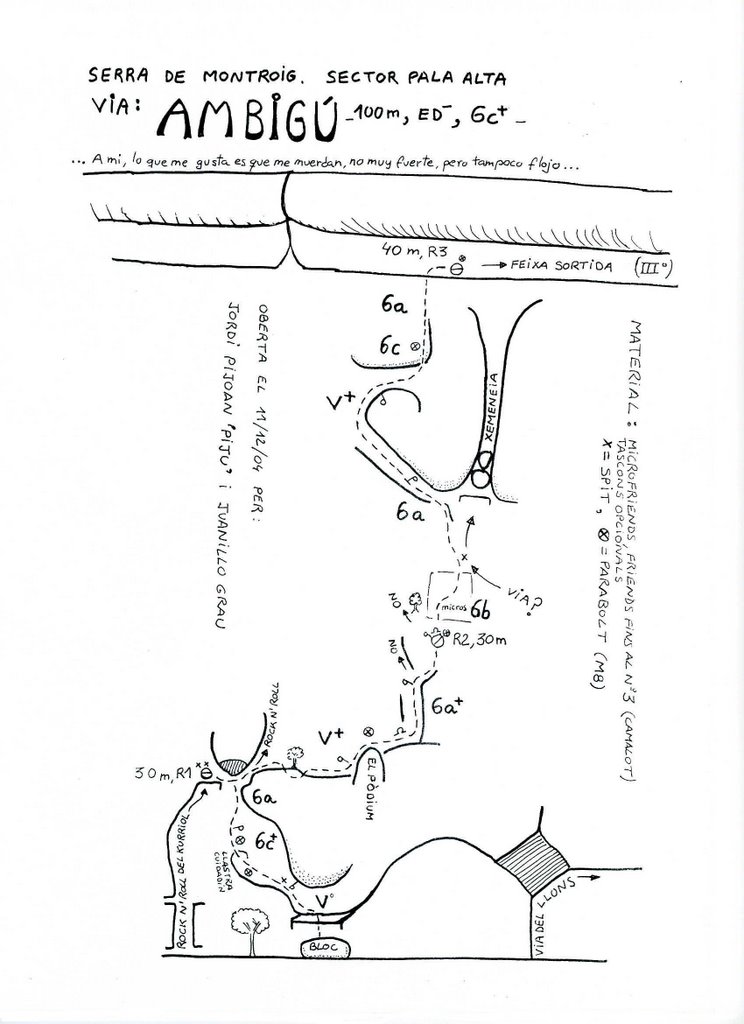 SERRA DE MONTROIG. SECTOR PALA ALTA
VIA: AMBIGÚ -100m, ED-, 6c+ -
... A mi, lo que me gusta es que me muerdan, no muy fuerte, pero tampoco flojo ...
40 m, R3
→ FEIXA SORTIDA (IIIº)
6a
6c
V+
XEMENEIA
6a
VIA?
NO
micros 6b
R2, 30m
NO
6a+
ROCK N' ROLL
V+
EL PÒDIUM
30m, R1
6a
6c+
LLASTRA
CUIDADIN
ROCK N' ROLL DEL KURRIOL
Vº
BLOC
VIA DEL LLONS →
OBERTA EL 11/12/04 PER:
JORDI PIJOAN "PIJU" i JUANILLO GRAU
MATERIAL: MICROFRIENDS, FRIENDS FINS AL Nº3 (CAMALOT)
TASCONS OPCIONALS
X = SPIT, ⊗ = PARABOLT (M8)